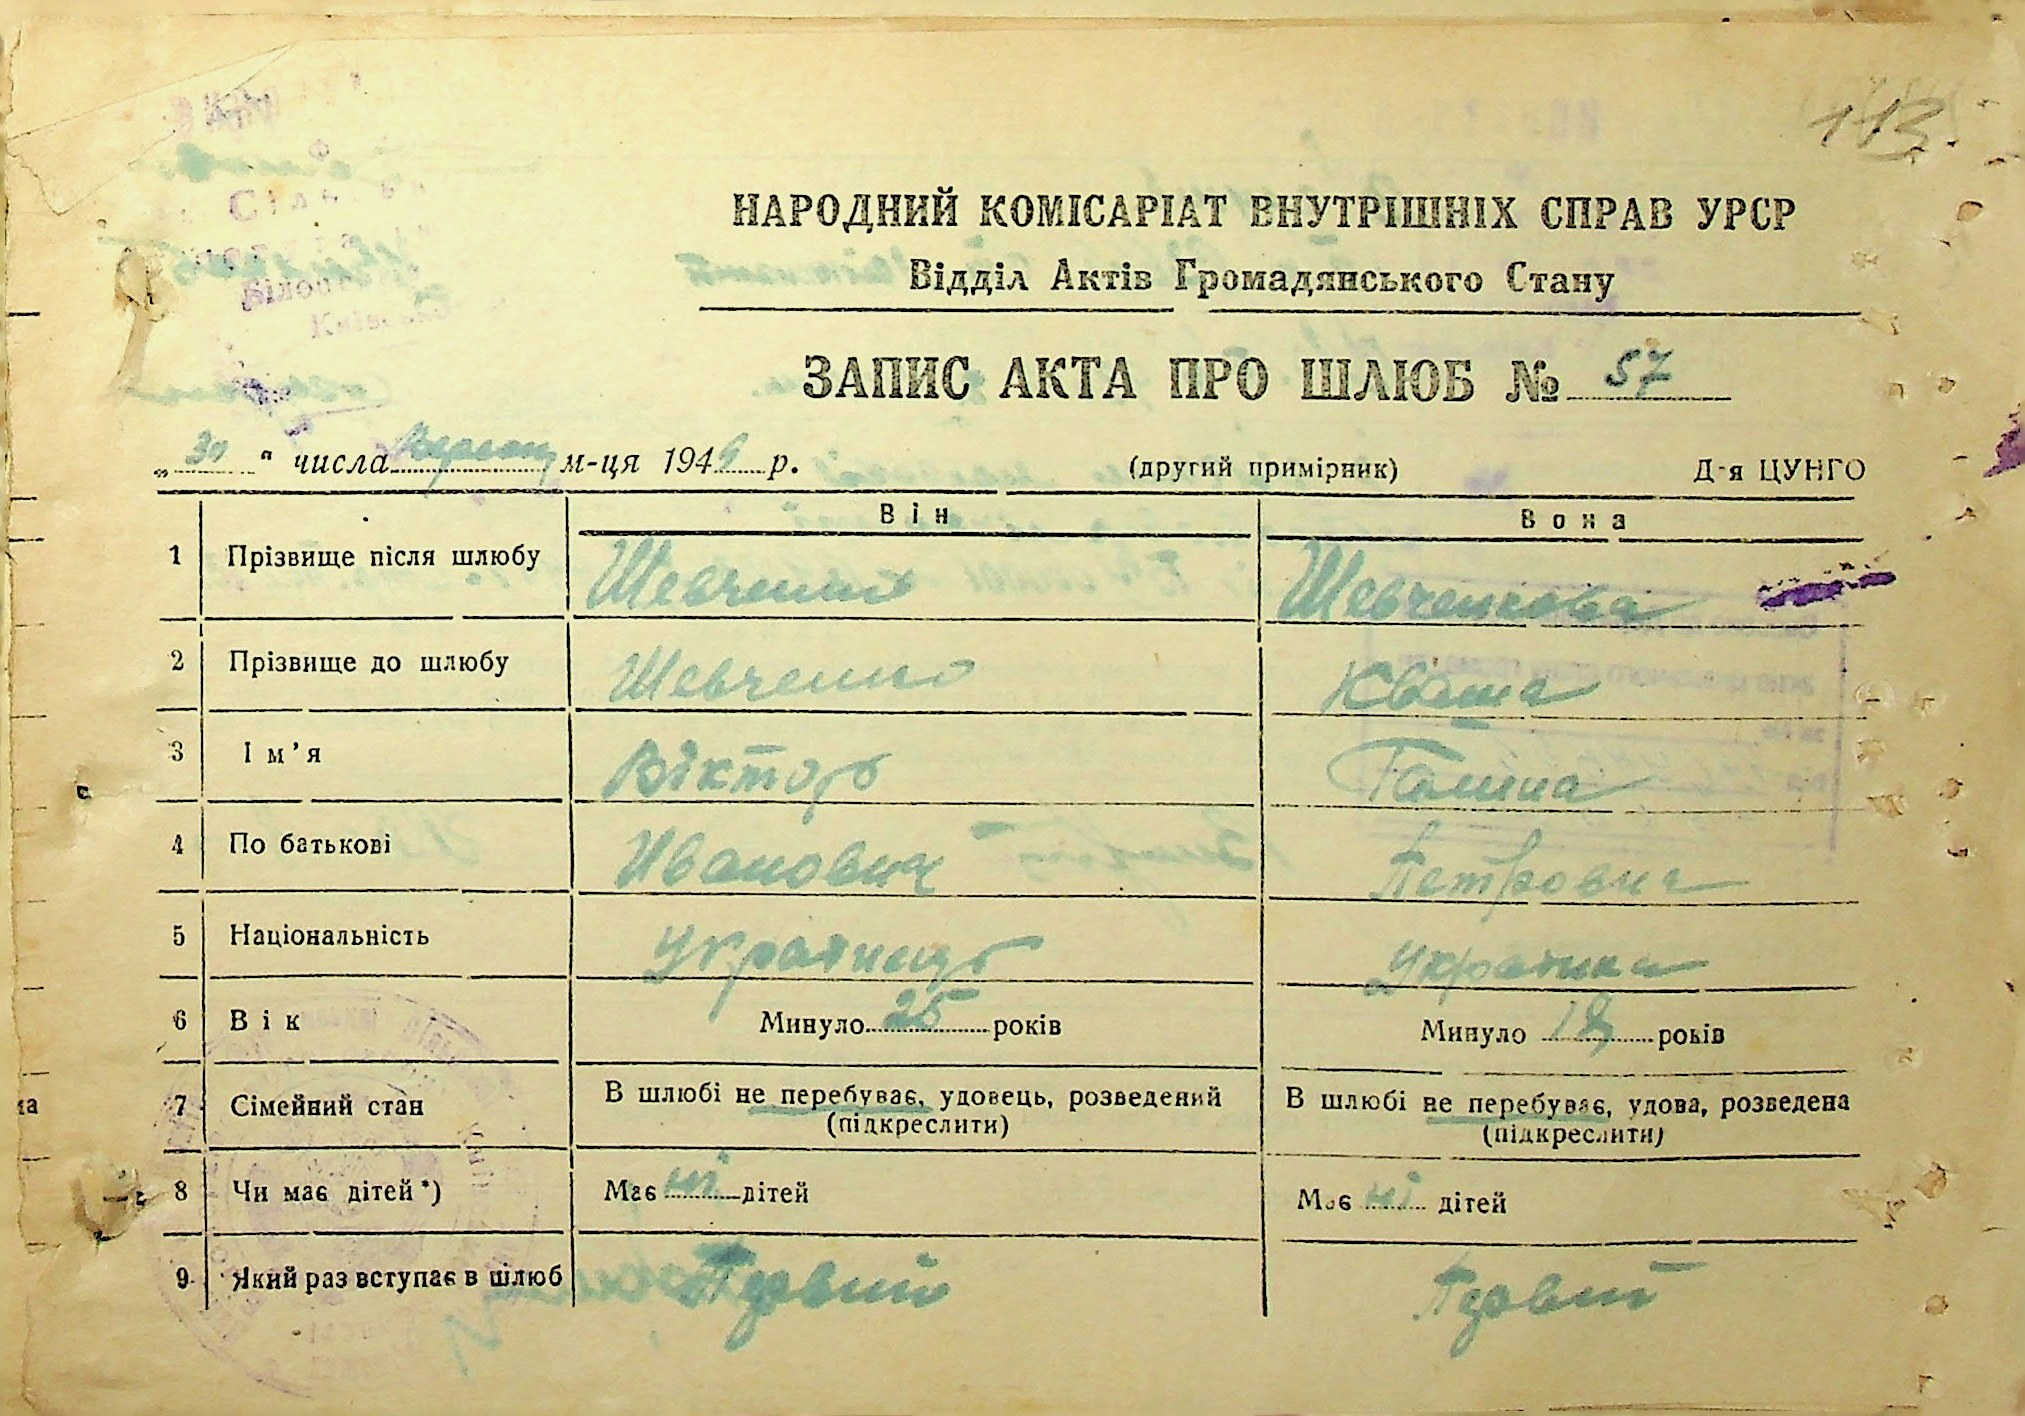 113
НАРОДНИЙ КОМІСАРІАТ ВНУТРІШНІХ СПРАВ УРСР
Відділ Актів Громадянського Стану
ЗАПИС АКТА ПРО ШЛЮБ № 57
„ 30 “ числа м-ця 194 р.
(другий примірник) Д-я ЦУНГО
Він Вона
1 Прізвище після шлюбу Шевченко Шевченкова
2 Прізвище до шлюбу Шевченко Кваша
3 Ім’я Віктор Галина
4 По батькові Иванович Петрович
5 Національність Украінець Украінка
6 Вік Минуло 25 років Минуло 18 років
7 Сімейний стан В шлюбі не перебуває, удовець, розведений В шлюбі не перебуває, удова, розведена
(підкреслити) (підкреслити)
8 Чи має дітей*) Має ні дітей Має ні дітей
9 Який раз вступає в шлюб Первий Первий